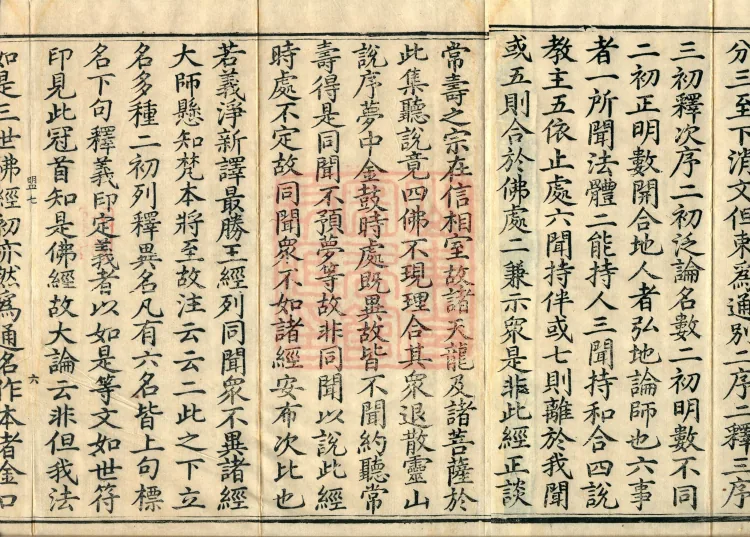 分三至下消文但東為通別二序二釋三序
三初釋次序二初泛論名數二初明數不同
二初正明數開合地人者弘地論師也六事
者一所聞法體二能持人三聞持和合四說
教主五依止處六聞持伴或七則離於我聞
或五則合於佛處二兼示眾是非此經正談
常壽之宗在信相室故諸天龍及諸菩薩於
此集聽說竟四佛不現理合其眾退散靈山
說序夢中金鼓時處既異故皆不聞約聽常
壽得是同聞不預夢等故非同聞以說此經
時處不定故同聞眾不如諸經安布次比也
若義淨新譯最勝王經列同聞眾不異諸經
大師懸知梵本將至故注云云二此之下立
名多種二初列釋異名凡有六名皆上句標
名下句釋義印定義者以如是等文如世符
印見此冠首知是佛經故大論云非但我法
盟七
六
如是三世佛經初亦然為通名作本者金口